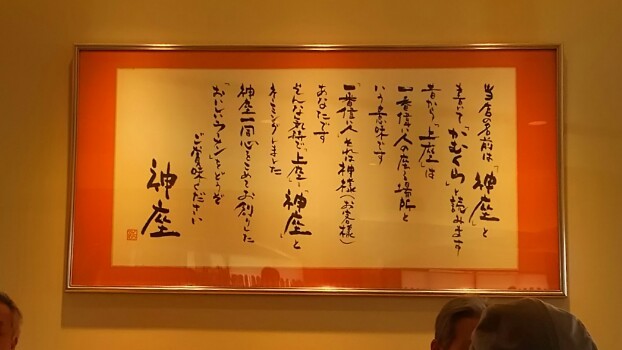 当店の名前は「神座」と
書いて「かむくら」と読みます
昔から「上座」は
一番偉い人の座る場所と
いう意味です
「一番偉い人」それは神様(お客様)
あなたです
そんな気持で「上座」「神座」と
ネーミングしました
神座一同心をこめてお創りした
「おいしいラーメン」をどうぞ
ご賞味ください
神座